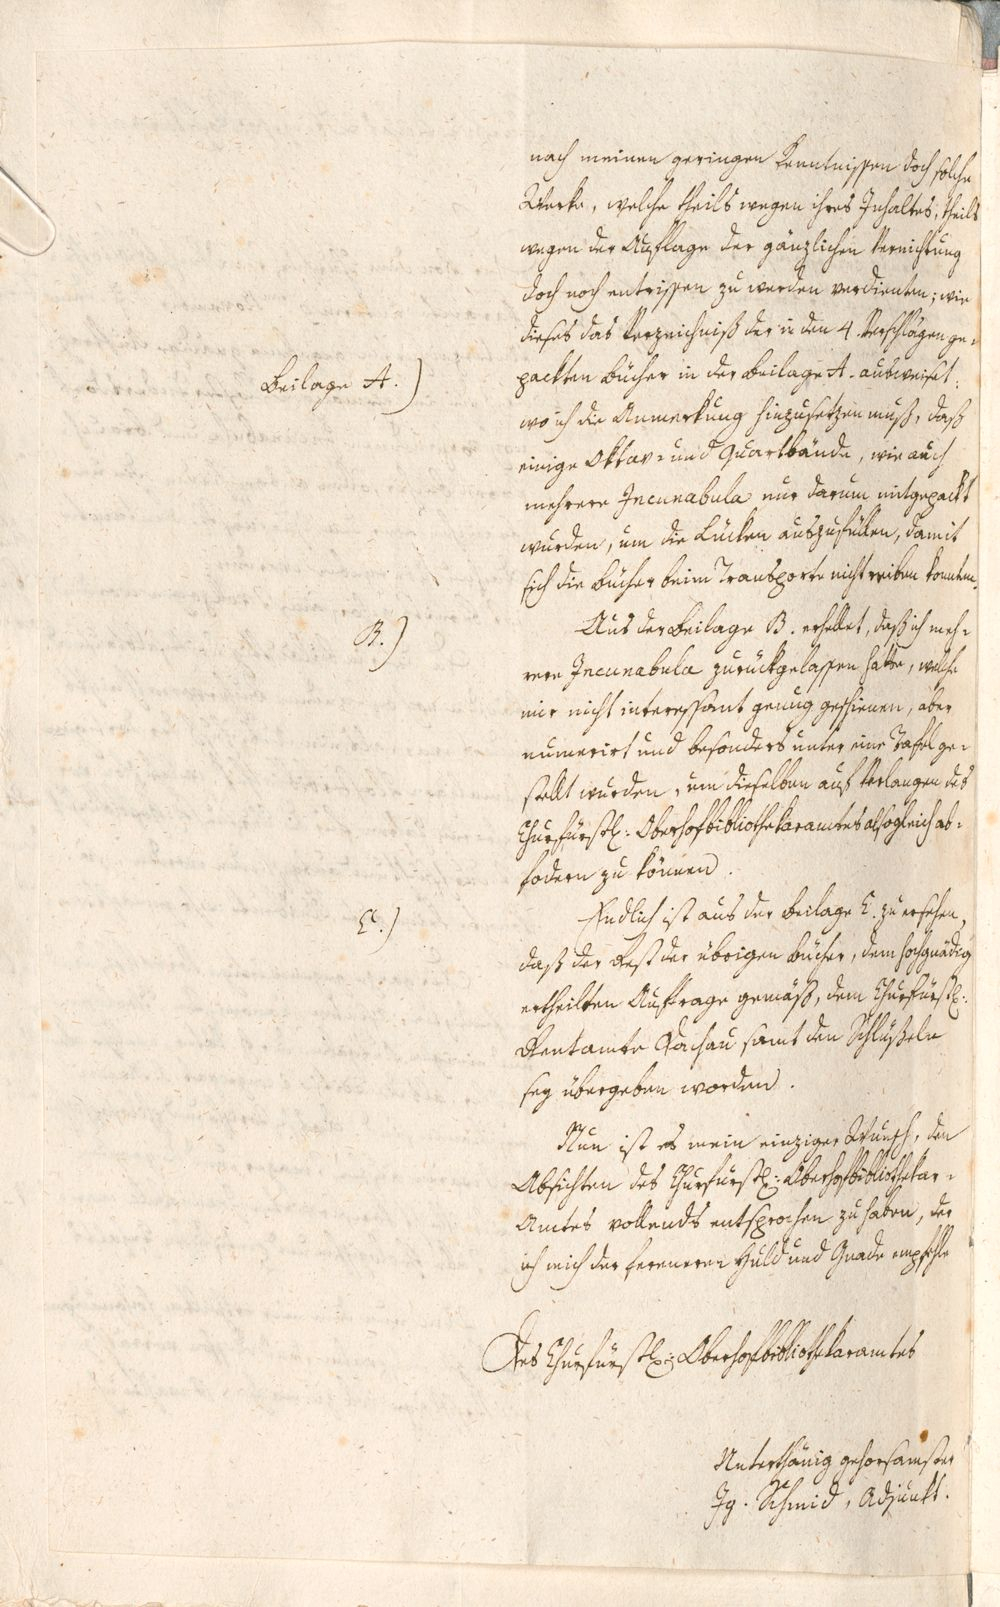 nach meinen geringen Kenntnissen doch solche
Werke, welche theils wegen ihres Inhaltes, theils
wegen der Auflage der gänzlichen Vernichtung
doch noch entrissen zu werden verdienten; wie
dieses das Verzeichniß der in den 4. Verschlägen ge-
Beilage A.)
packten Bücher in der Beilage A. ausweiset:
wo ich die Anmerkung hinzusetzen muß, daß
einige Oktav- und Quartbände, wie auch
mehrere Incunabula nur darum mitgepackt
wurden, um die Lücken auszufüllen, damit
sich die Bücher beim Transporte nicht reiben konnten.
B.)
Aus der Beilage B. erhellet, daß ich meh-
rere Incunabula zurückgelassen hatte, welche
mir nicht interessant genug geschienen, aber
numerirt und besonders unter eine Tafel ge-
stellt wurden, um dieselben auf Verlangen des
Churfürstl: Oberhofbibliothekaramtes alsogleich ab-
fodern zu können.
C.)
Endlich ist aus der Beilage C. zu ersehen,
daß der Rest der übrigen Bücher, dem hochgnädig
ertheilten Auftrage gemäß, dem Churfürstl:
Rentamte Dachau samt den Schlüßeln
sey übergeben worden.
Nun ist es mein einziger Wunsch, den
Absichten des Churfürstl: Oberhofbibliothekar-
Amtes vollends entsprochen zu haben, der
ich mich der ferneren Huld und Gnade empfehle
Des Churfürstl: Oberhofbibliothekaramtes
Unterthänig gehorsamster
Ig. Schmid, Adjunkt.